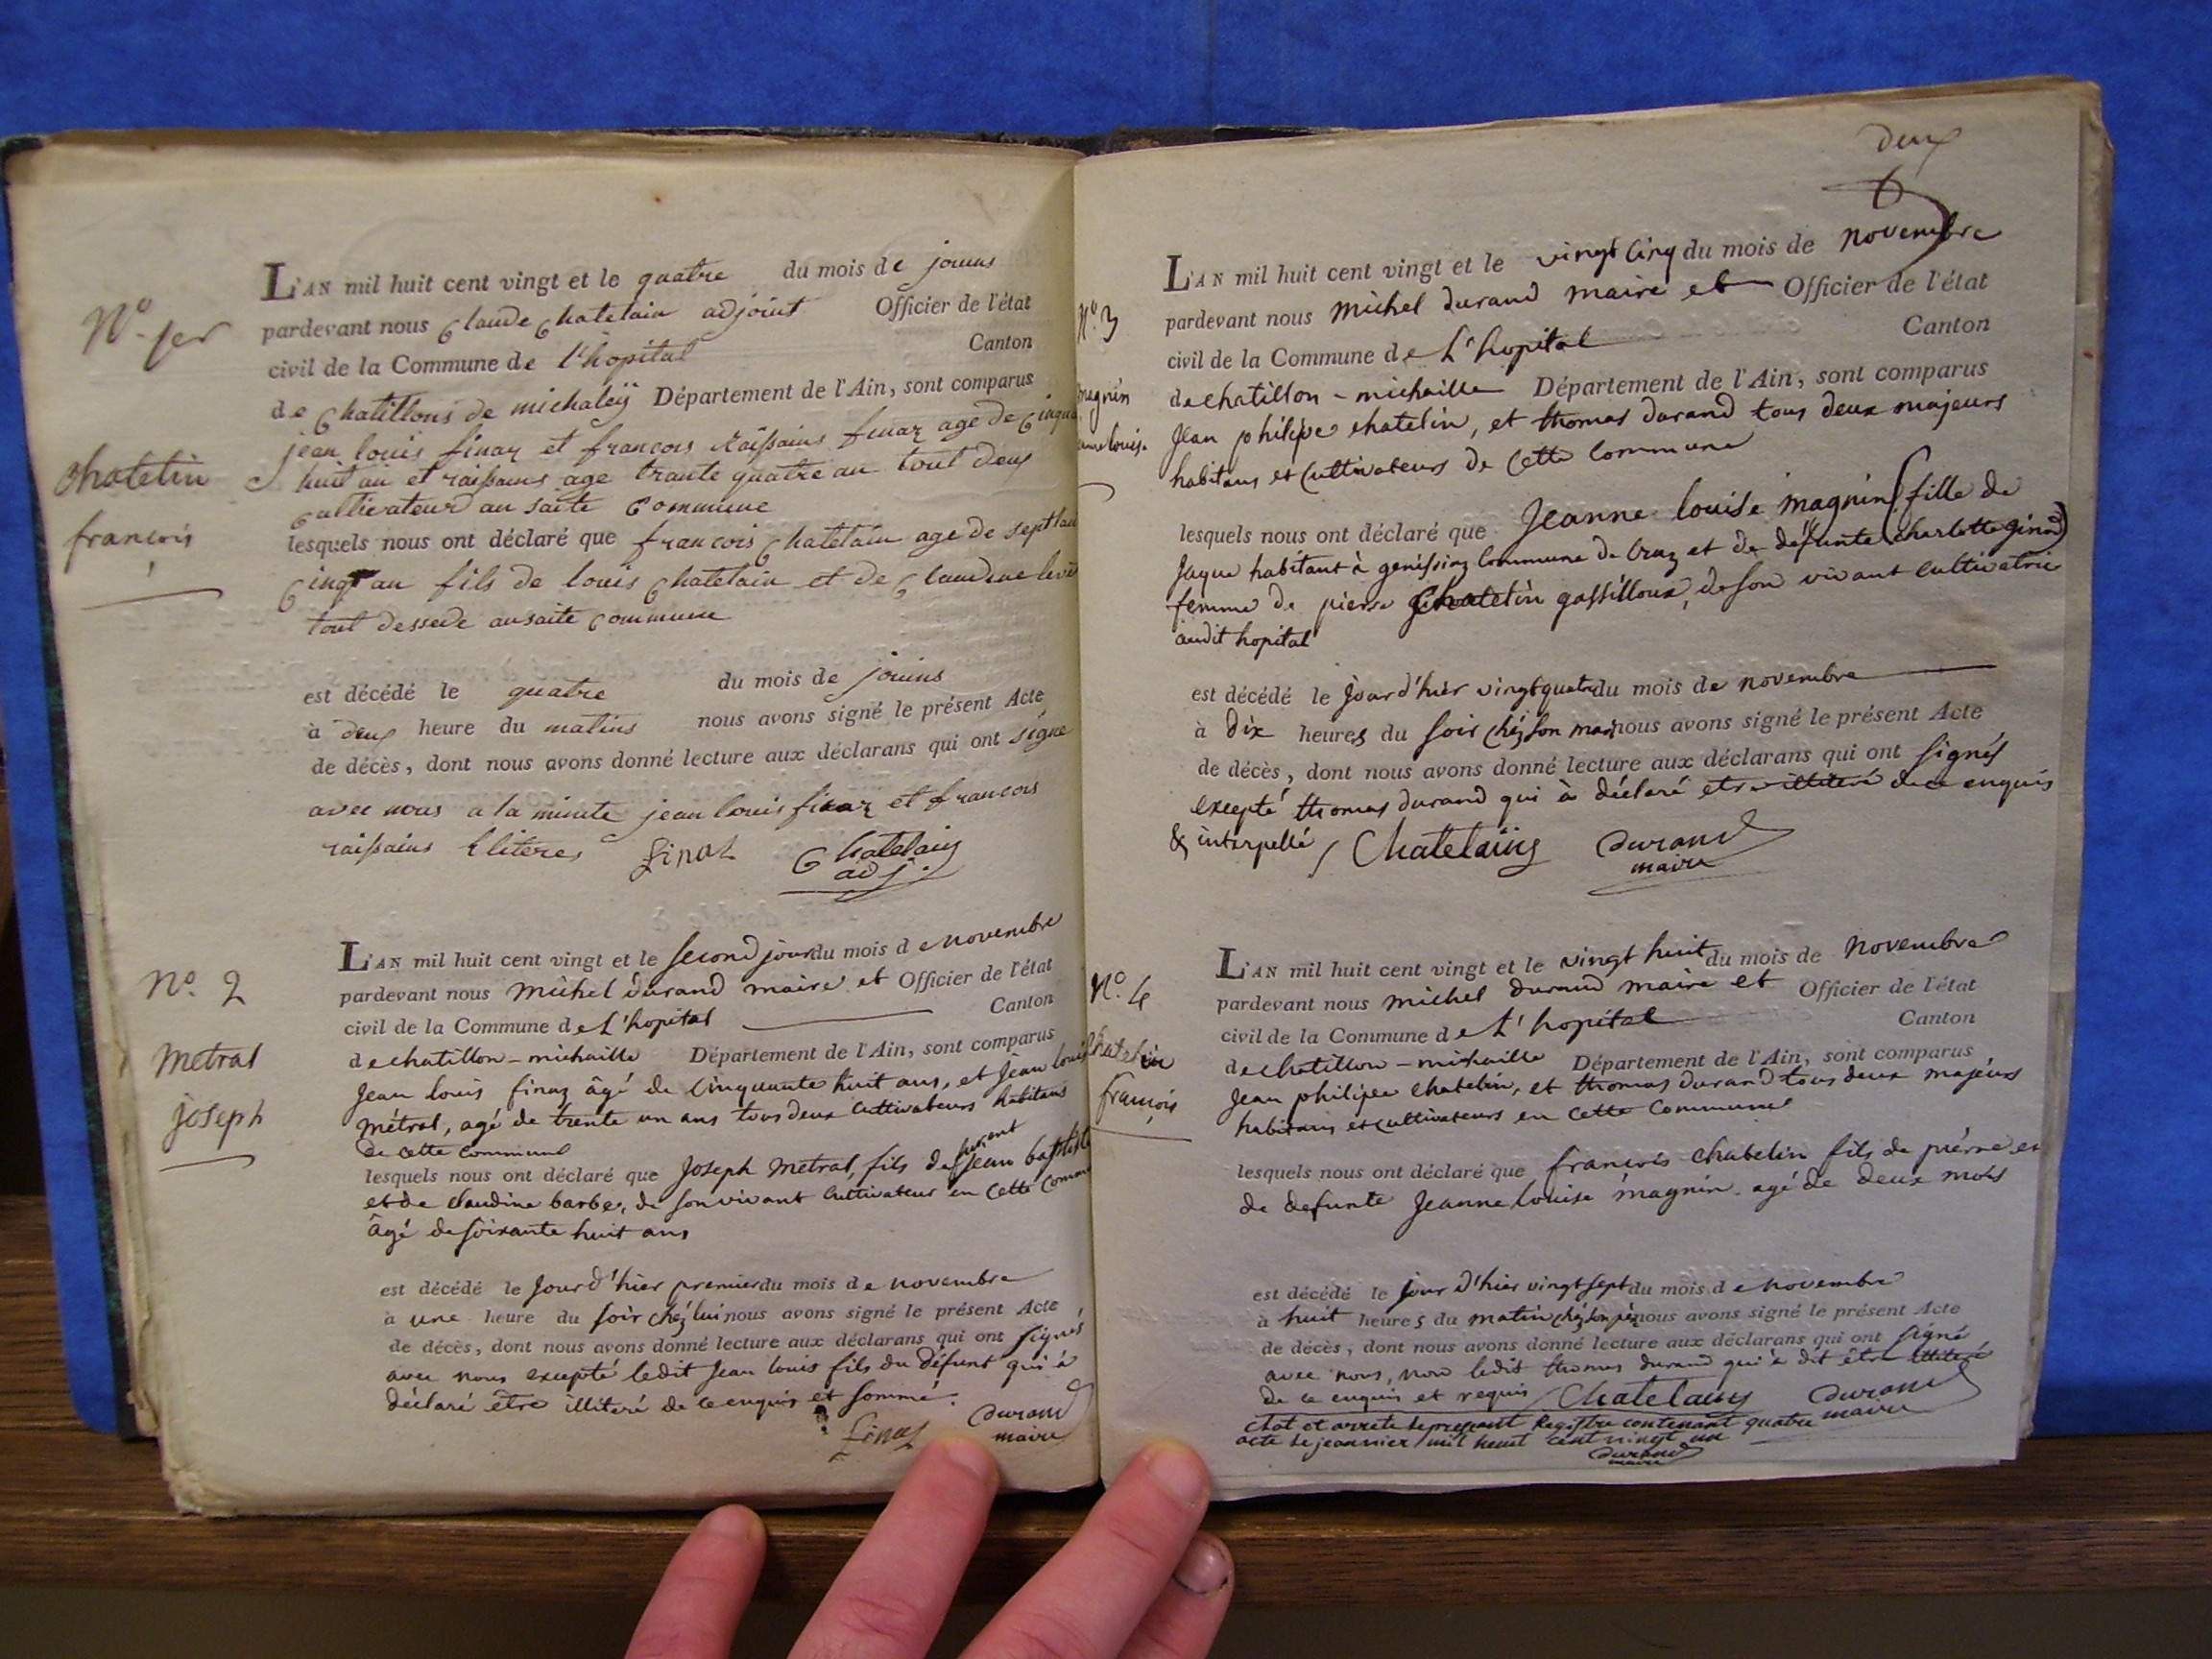 No. 1er
chatelin
francois
L'AN mil huit cent vingt et le quatre du mois de jouins
pardevant nous Claude Chatelain adjoint Officier de l'état
civil de la Commune de l'hopital Canton
de Chatillons de michaleÿ Département de l'Ain, sont comparus
jean louis finaz et francois raissains finaz age de Cinqua
huit an et raissains age trante quatre an tout deux
Cultivateur au saite Commune
lesquels nous ont déclaré que francois Chatelain age de septtan
Cinq an fils de louis Chatelain et de Claudine
tout dessede ausaite Commune
est décédé le quatre du mois de jouins
à deux heure du matins nous avons signé le présent Acte
de décès, dont nous avons donné lecture aux déclarans qui ont signe
avec nous a la minute jean louis finaz et francois
raissains Eliteres finaz Chatelain
adj.
No. 2
Metral
joseph
L'AN mil huit cent vingt et le second jour du mois de novembre
pardevant nous Michel durand maire et Officier de l'état
civil de la Commune de L'hopital Canton
de chatillon - michaille Département de l'Ain, sont comparus
Jean louis finaz âgé de cinquante huit ans, et Jean louis
métral, agé de trente un ans tous deux cultivateurs habitans
de cette commune
lesquels nous ont déclaré que Joseph Metral, fils de Jean baptiste
et de Claudine barbe, de son vivant cultivateur en cette commu
âgé de soixante huit ans
est décédé le Jour d'hier premier du mois de novembre
à une heure du soir chéz lui nous avons signé le présent Acte
de décès, dont nous avons donné lecture aux déclarans qui ont signés
avec nous excepté ledit Jean louis fils du défunt qui à
déclaré être illiteré de ce enquis et sommé.
finaz Durand
maire
deux
No. 3
magnin
L'AN mil huit cent vingt et le vingt Cinq du mois de novembre
pardevant nous michel durand maire et Officier de l'état
civil de la Commune de L'hopital Canton
de chatillon - michaille Département de l'Ain, sont comparus
Jean philipe chatelin, et thomas durand tous deux majeurs
habitans et cultivateurs de cette commune
lesquels nous ont déclaré que Jeanne louise magnin fille de
Jaque habitant à genissiaz commune de Cruz et de défunte Charlotte ginod
femme de pierre Chatelin gassilloux, de son vivant cultivatrice
audit hopital
est décédé le jour d'hier vingt quatre du mois de novembre
à dix heures du soir chéz son mari nous avons signé le présent Acte
de décès, dont nous avons donné lecture aux déclarans qui ont signés
excepté thomas durand qui à déclaré etre illiteré de ce enquis
& interpellé / Chatelains Durand
maire
No. 4
Chatelin
francois
L'AN mil huit cent vingt et le vingt huit du mois de novembre
pardevant nous michel durand maire et Officier de l'état
civil de la Commune de L'hopital Canton
de chatillon - michaille Département de l'Ain, sont comparus
Jean philipe chatelin, et thomas durand tous deux majeurs
habitans et cultivateurs en cette commune
lesquels nous ont déclaré que francois chatelin fils de pièrre et
de defunte Jeanne louise magnin agé de deux mois
est décédé le jour d'hier vingt sept du mois de novembre
à huit heures du matin chéz son père nous avons signé le présent Acte
de décès, dont nous avons donné lecture aux déclarans qui ont signé
avec nous, non ledit thomas durand qui a dit être illiteré
de ce enquis et requis / Chatelains Durand
maire
clot et arrete le present Registre contenant quatre
acte le jeanvier mil heuit cent vingt un
Durand
maire